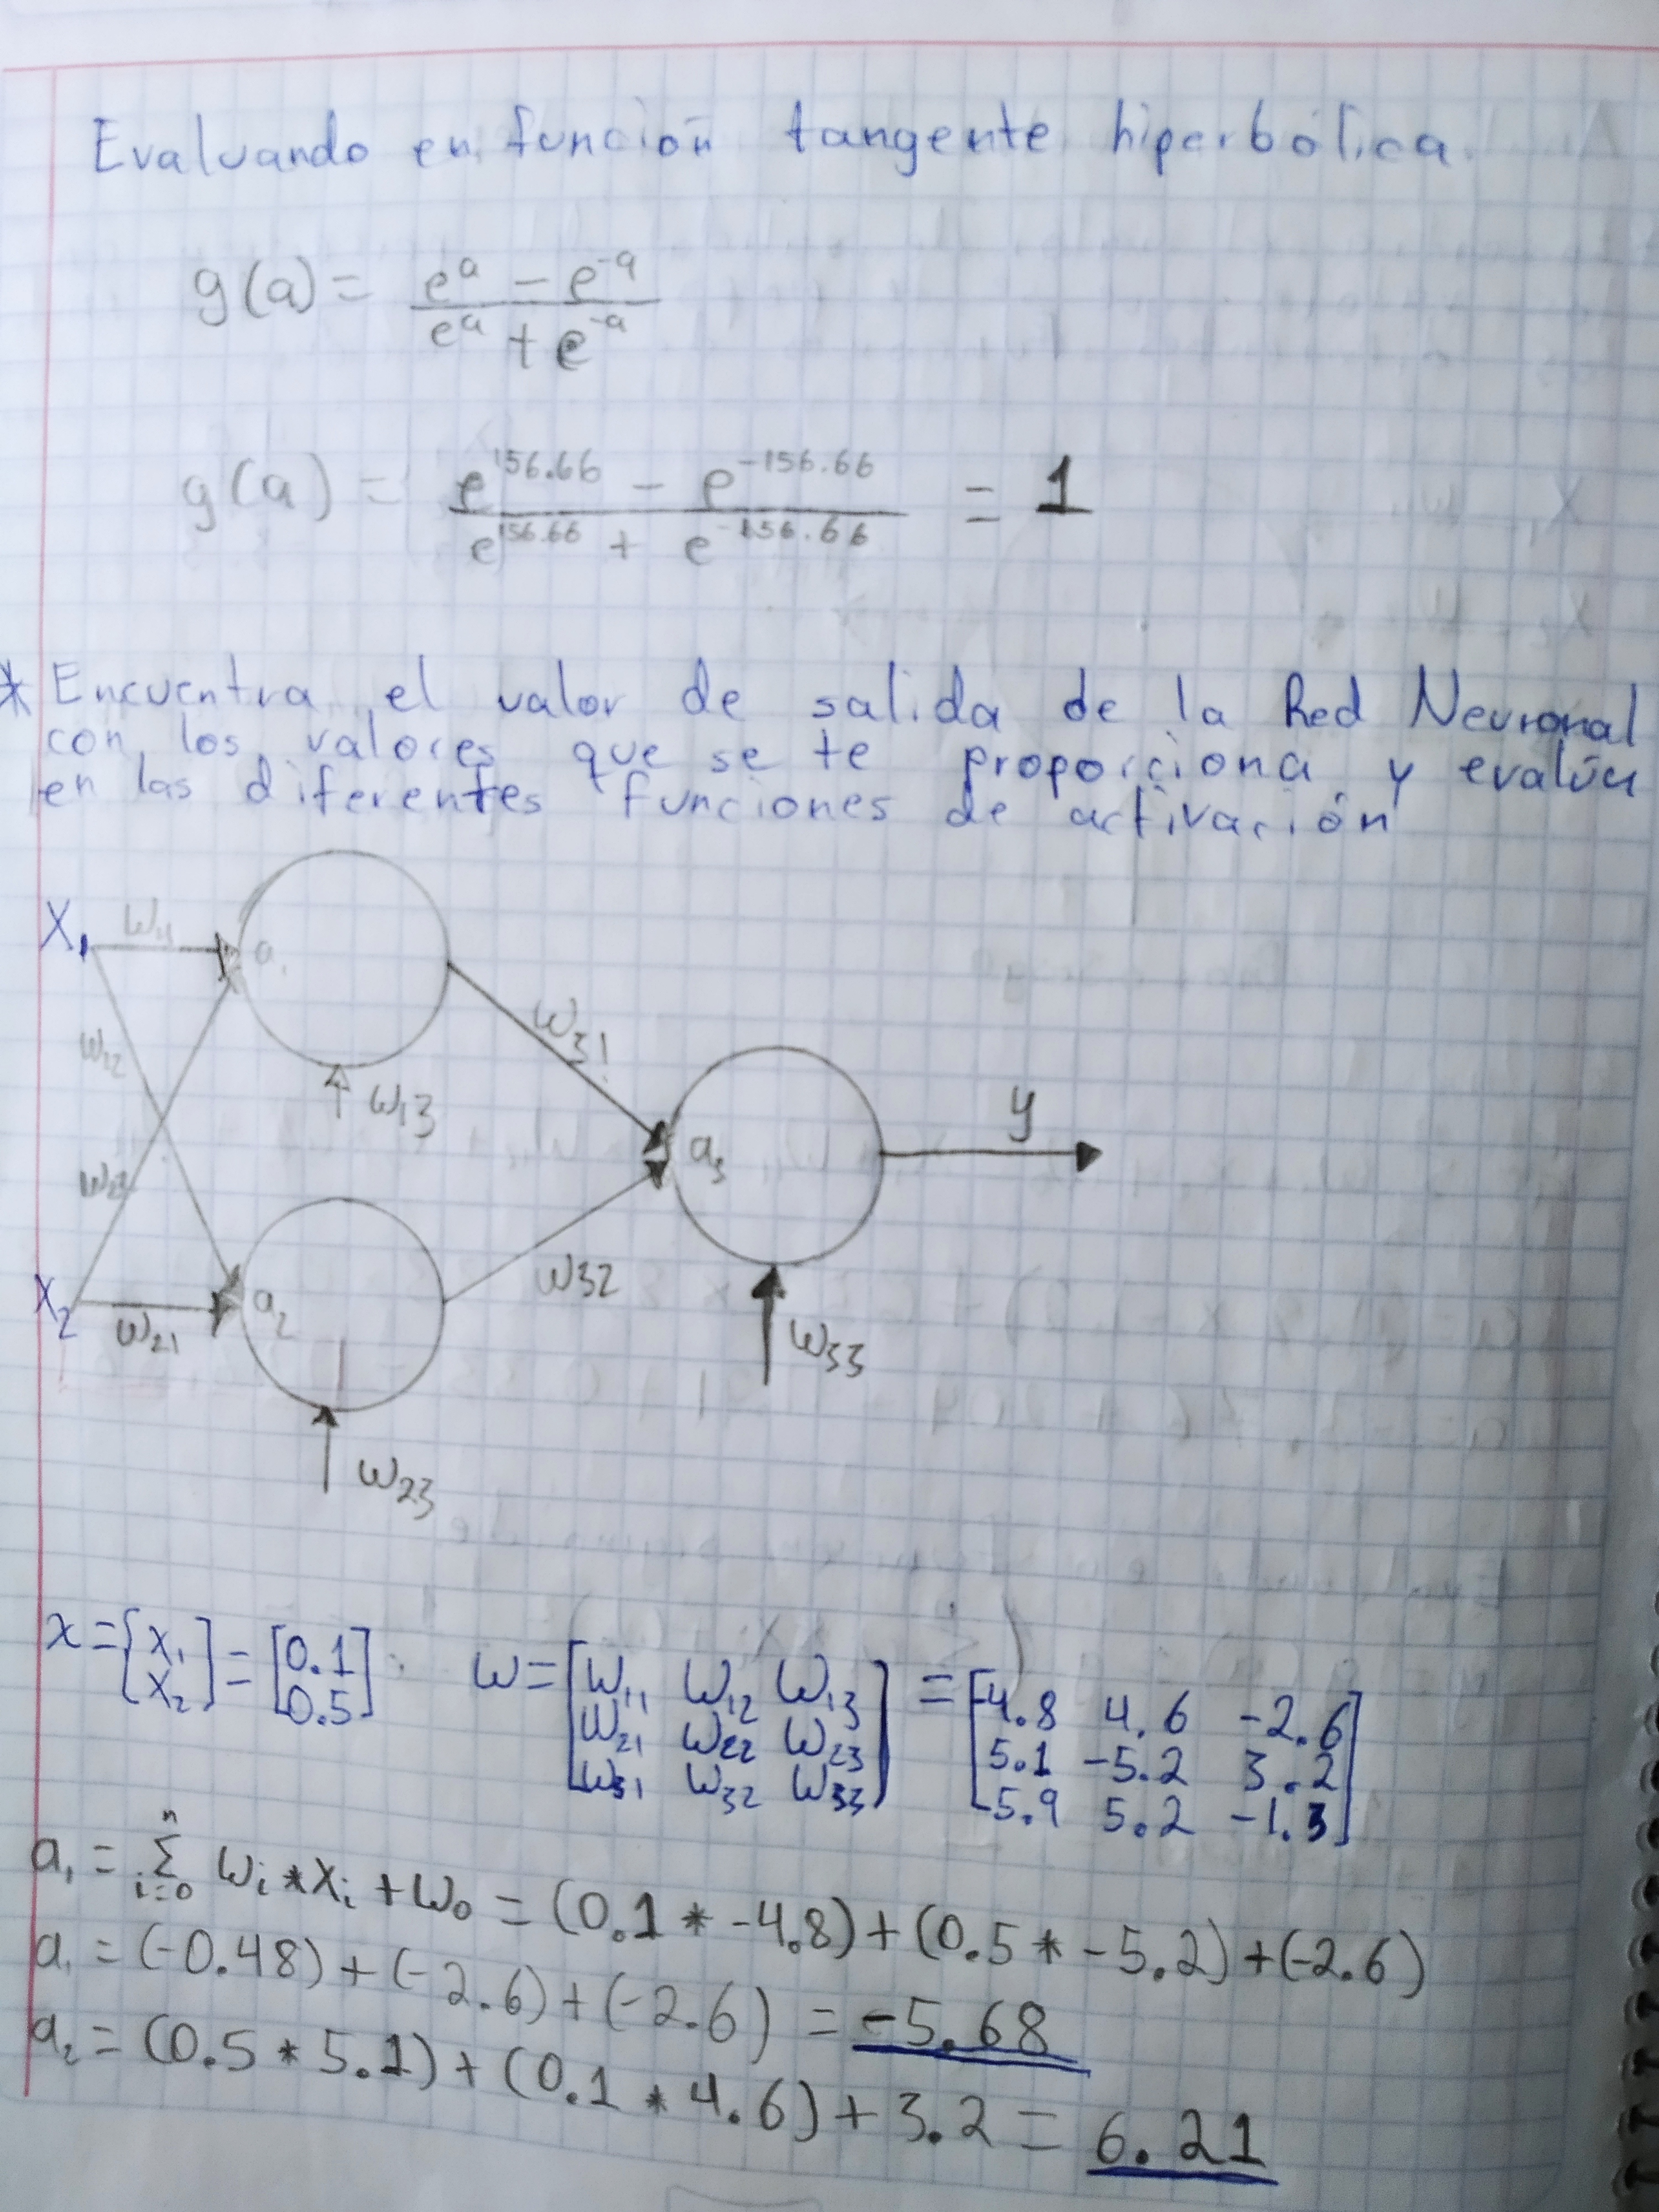 Evaluando en función tangente hiperbólica.
g(a) = (e^a − e^-a) / (e^a + e^-a)
g(a) = (e^156.66 − e^-156.66) / (e^156.66 + e^-156.66) = 1
* Encuentra el valor de salida de la Red Neuronal
con los valores que se te proporciona y evalúa
en las diferentes funciones de activación
X1 w11 a1
w12
w13
w31
w22
X2 w21 a2
w23
w32
a3
w33
y
x = [x1 x2] = [0.1 0.5]
w = [w11 w12 w13
w21 w22 w23
w31 w32 w33]
= [-4.8 4.6 -2.6
5.1 -5.2 3.2
-5.9 5.2 -1.3]
a1 = Σ(i=0, n) wi * xi + w0 = (0.1 * -4.8) + (0.5 * -5.2) + (-2.6)
a1 = (-0.48) + (-2.6) + (-2.6) = -5.68
a2 = (0.5 * 5.1) + (0.1 * 4.6) + 3.2 = 6.21